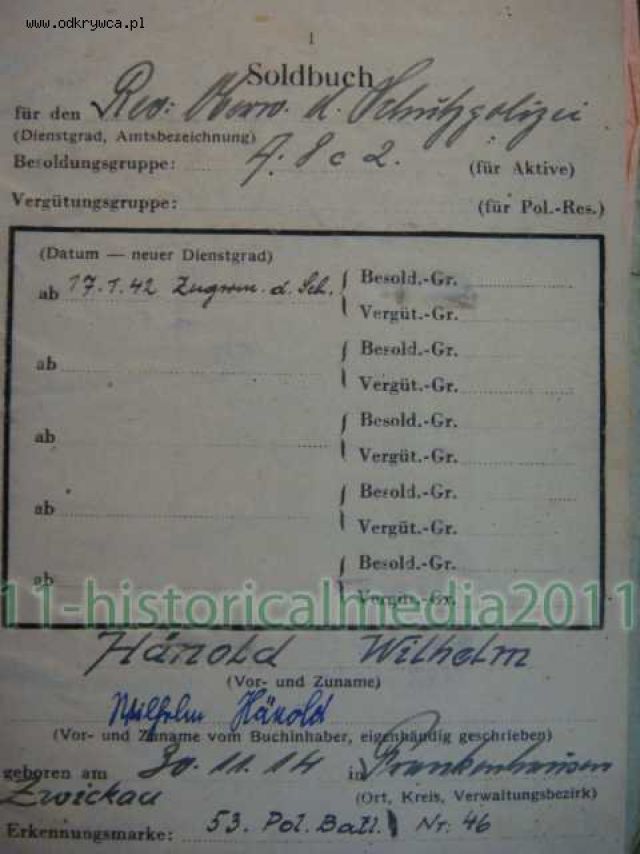 www.odkrywca.pl
1
Soldbuch
für den Rev. Oberw. d. Schutzpolizei
(Dienstgrad, Amtsbezeichnung)
Besoldungsgruppe: A. 8 c 2. (für Aktive)
Vergütungsgruppe: (für Pol.-Res.)
(Datum — neuer Dienstgrad)
ab 17.1.42 Zugwm. d. Sch. { Besold.-Gr.
Vergüt.-Gr.
ab { Besold.-Gr.
Vergüt.-Gr.
ab { Besold.-Gr.
Vergüt.-Gr.
ab { Besold.-Gr.
Vergüt.-Gr.
ab { Besold.-Gr.
Vergüt.-Gr.
11-historicalmedia2011
Hänold Wilhelm
(Vor- und Zuname)
Wilhelm Hänold
(Vor- und Zuname vom Buchinhaber, eigenhändig geschrieben)
geboren am 30.11.14 in Frankenhausen
Zwickau (Ort, Kreis, Verwaltungsbezirk)
Erkennungsmarke: 53. Pol. Batl. Nr: 46